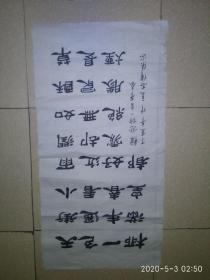 天街小雨潤如酥草
色遥看近却無最是
一年春好處絕勝煙
柳滿皇都
2020-5-3 02:50